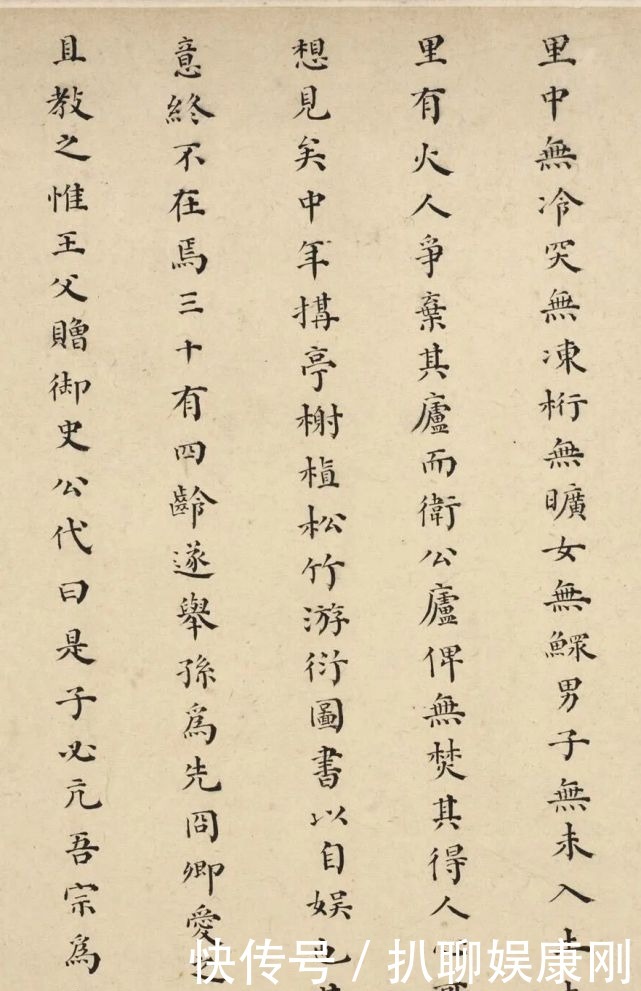 里中無冷突無凍桁無曠女無鰥男子無未入土
里有火人爭棄其廬而衛公廬俾無焚其得人心
想見矣中年搆亭榭植松竹游衍圖書以自娛也
意終不在焉三十有四齡遂舉孫爲先冏卿愛之
且教之惟王父贈御史公代曰是子必亢吾宗爲
快传号 / 扒聊娱康刚